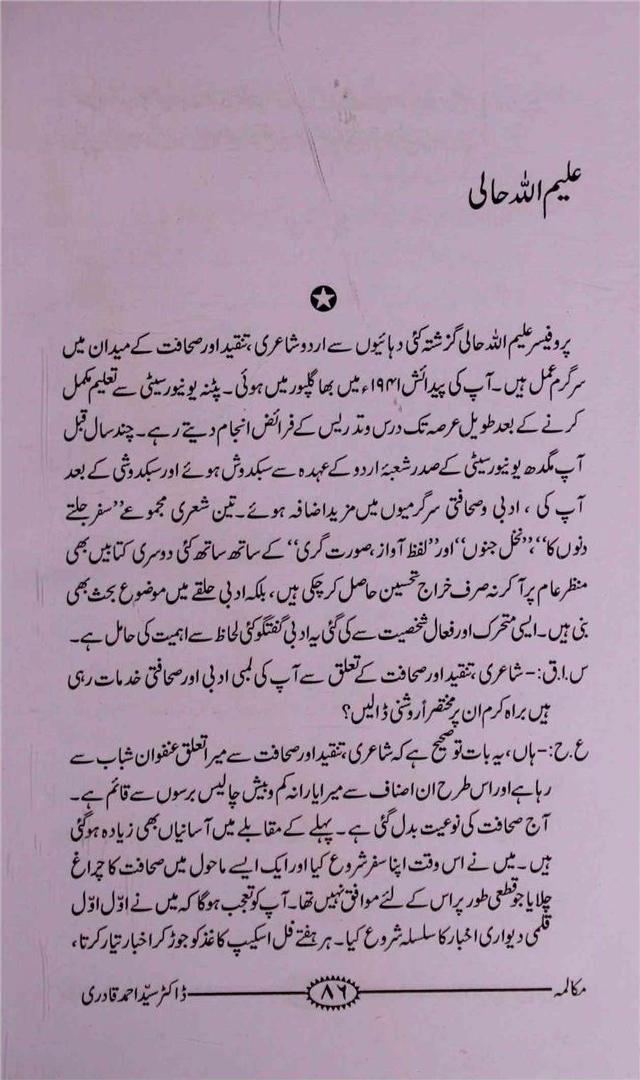 علیم اللہ حالی
پروفیسر علیم اللہ حالی گزشتہ کئی دہائیوں سے اردو شاعری، تنقید اور صحافت کے میدان میں
سرگرم عمل ہیں۔ آپ کی پیدائش ۱۹۴۱ء میں بھاگلپور میں ہوئی۔ پٹنہ یونیورسیٹی سے تعلیم مکمل
کرنے کے بعد طویل عرصہ تک درس و تدریس کے فرائض انجام دیتے رہے۔ چند سال قبل
آپ مگدھ یونیورسیٹی کے صدر شعبۂ اردو کے عہدہ سے سبکدوش ہوئے اور سبکدوشی کے بعد
آپ کی، ادبی و صحافتی سرگرمیوں میں مزید اضافہ ہوئے۔ تین شعری مجموعے ’’سفر جلتے
دنوں کا‘‘، ’’نخل جنوں‘‘ اور ’’لفظ آواز، صورت گری‘‘ کے ساتھ ساتھ کئی دوسری کتابیں بھی
منظر عام پر آ کر نہ صرف خراج تحسین حاصل کر چکی ہیں، بلکہ ادبی حلقے میں موضوع بحث بھی
بنی ہیں۔ ایسی متحرک اور فعال شخصیت سے کی گئی یہ ادبی گفتگو کئی لحاظ سے اہمیت کی حامل ہے۔
س۔ا۔ق:- شاعری، تنقید اور صحافت کے تعلق سے آپ کی لمبی ادبی اور صحافتی خدمات رہی
ہیں براہ کرم ان پر مختصراً روشنی ڈالیں؟
ع۔ح:- ہاں، یہ بات تو صحیح ہے کہ شاعری، تنقید اور صحافت سے میرا تعلق عنفوان شباب سے
رہا ہے اور اس طرح ان اصناف سے میرا یارانہ کم و بیش چالیس برسوں سے قائم ہے۔
آج صحافت کی نوعیت بدل گئی ہے۔ پہلے کے مقابلے میں آسانیاں بھی زیادہ ہو گئی
ہیں۔ میں نے اس وقت اپنا سفر شروع کیا اور ایک ایسے ماحول میں صحافت کا چراغ
جلایا جو قطعی طور پر اس کے لئے موافق نہیں تھا۔ آپ کو تعجب ہوگا کہ میں نے اوّل اوّل
قلمی دیواری اخبار کا سلسلہ شروع کیا۔ ہر ہفتے فل اسکیپ کاغذ کو جوڑ کر اخبار تیار کرتا،
مکالمہ ۸۶ ڈاکٹر سیّد احمد قادری